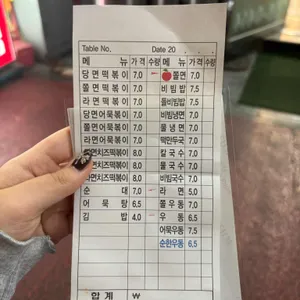 Table No. Date 20
메 뉴 가격 수량 메 뉴 가격 수량
당면떡볶이 7.0 쫄면 7.0
쫄면떡볶이 7.0 비빔밥 7.5
라면떡볶이 7.0 돌비빔밥 7.5
당면어묵볶이 7.0 비빔냉면 7.0
쫄면어묵볶이 7.0 물냉면 7.0
라면어묵볶이 7.0 떡만두국 7.0
면치즈떡볶이 8.0 칼국수 7.0
면치즈떡볶이 8.0 물국수 7.0
라면치즈떡볶이 8.0 비빔국수 7.0
순 대 7.0 라면 5.0
어묵탕 6.5 쫄우동 7.0
김 밥 4.0 우동 6.5
어묵우동 7.5
순한우동 6.5
합 계 ₩